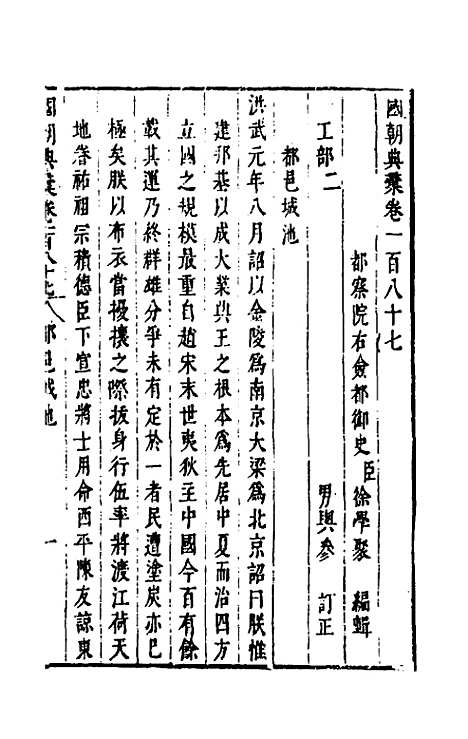 國朝典彙卷一百八十七
都察院右僉都御史臣徐學聚 編輯
男與參 訂正
工部二
都邑城池
洪武元年八月詔以金陵爲南京大梁爲北京詔曰朕惟
建邦基以成大業興王之根本爲先居中夏而治四方
立國之規模最重自趙宋末世夷狄主中國今百有餘
載其運乃終群雄分爭未有定於一者民遭塗炭亦已
極矣朕以布衣當擾攘之際拔身行伍率將渡江荷天
地眷祐祖宗積德臣下宣忠將士用命西平陳友諒東
國朝典彙卷一百八十七 都邑城池 一